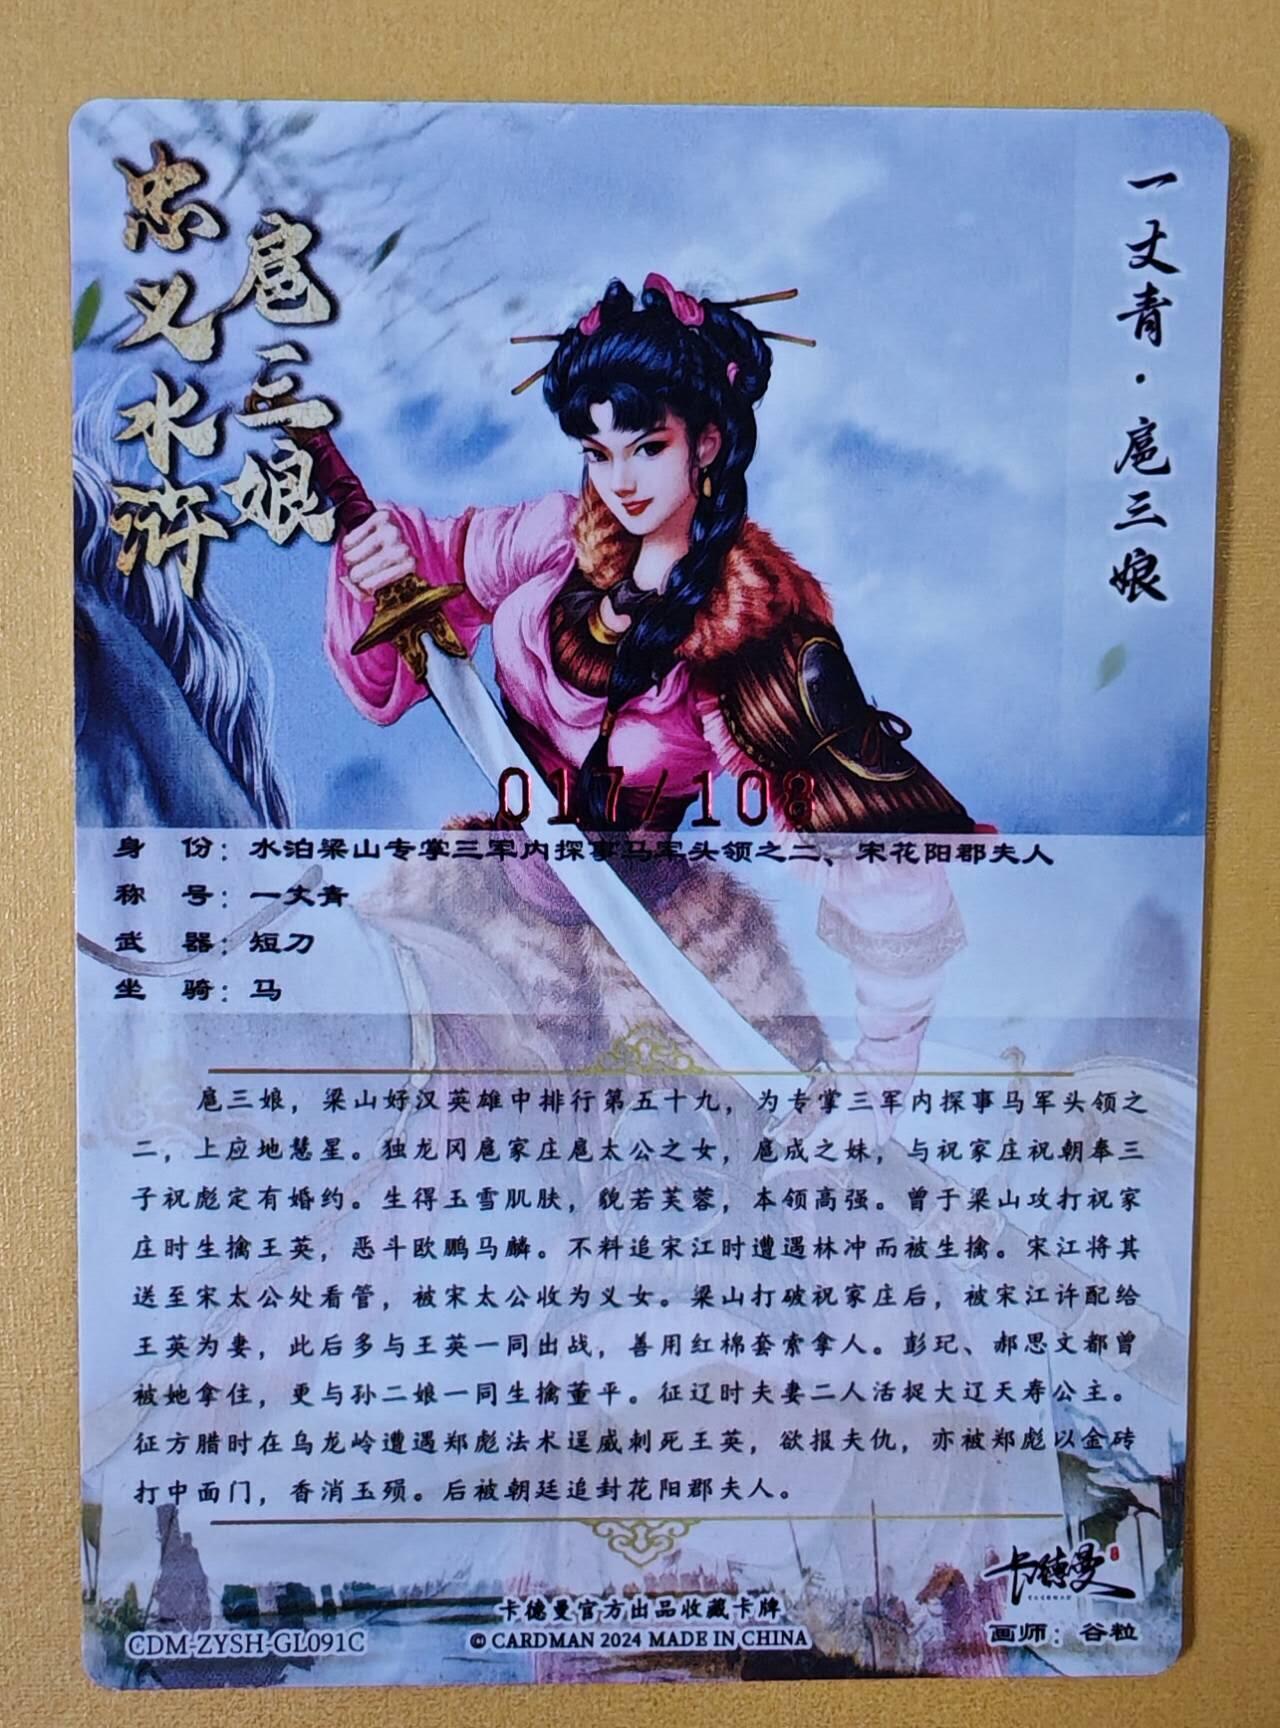 忠义水浒
扈三娘
一丈青·扈三娘
017/108
身 份：水泊梁山专掌三军内探事马军头领之二、宋花阳郡夫人
称 号：一丈青
武 器：短刀
坐 骑：马
扈三娘，梁山好汉英雄中排行第五十九，为专掌三军内探事马军头领之
二，上应地慧星。独龙冈扈家庄扈太公之女，扈成之妹，与祝家庄祝朝奉三
子祝彪定有婚约。生得玉雪肌肤，貌若芙蓉，本领高强。曾于梁山攻打祝家
庄时生擒王英，恶斗欧鹏马麟。不料追宋江时遭遇林冲而被生擒。宋江将其
送至宋太公处看管，被宋太公收为义女。梁山打破祝家庄后，被宋江许配给
王英为妻，此后多与王英一同出战，善用红棉套索拿人。彭玘、郝思文都曾
被她拿住，更与孙二娘一同生擒董平。征辽时夫妻二人活捉大辽天寿公主。
征方腊时在乌龙岭遭遇郑彪法术逞威刺死王英，欲报夫仇，亦被郑彪以金砖
打中面门，香消玉殒。后被朝廷追封花阳郡夫人。
卡德曼
卡德曼官方出品收藏卡牌
CDM-ZYSH-GL091C
© CARDMAN 2024 MADE IN CHINA
画师：谷粒